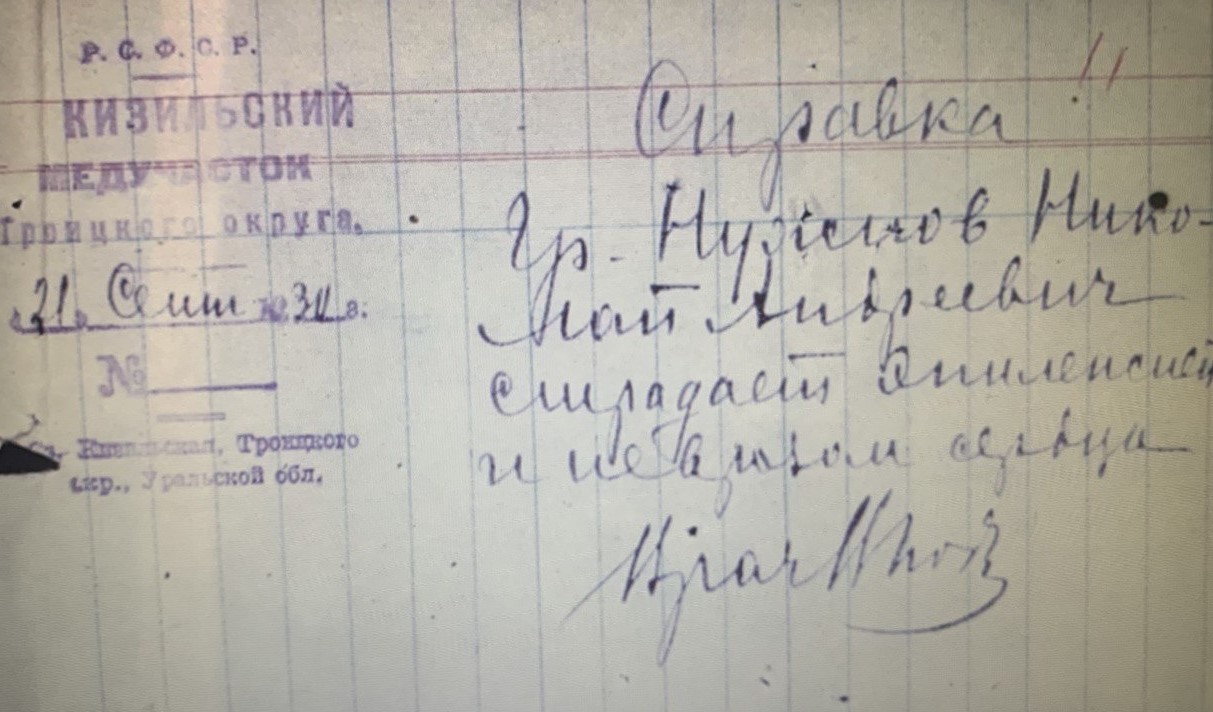 Р. С. Ф. С. Р.
КИЗИЛЬСКИЙ
МЕДУЧАСТОК
Троицкого округа.
21 Сент 1930 г.
№
Ст. Кизильская, Троицкого
окр., Уральской обл.
11
Справка
Гр. Нужнов Нико-
лай Андреевич
страдает эпилепсией
и неврозом сердца
Врач